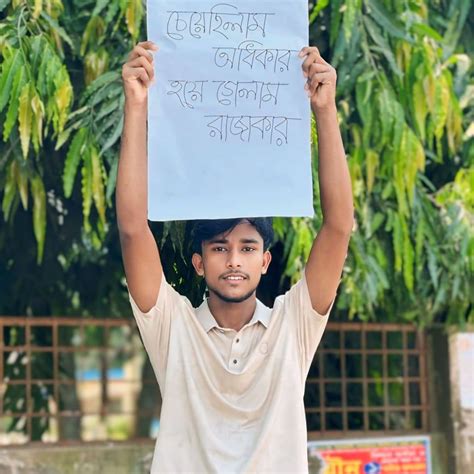 চেয়েছিলাম
অধিকার
হয়ে গেলাম
রাজাকার